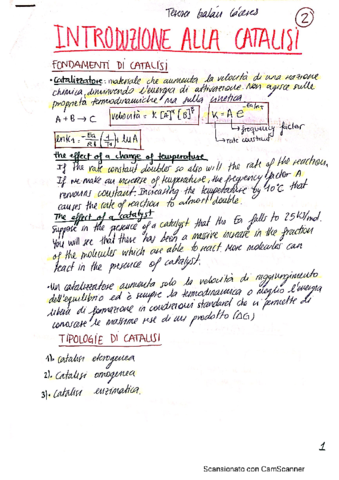 Teresa Galán Cáceres
2
INTRODUZIONE ALLA CATALISI
FONDAMENTI DI CATALISI
• Catalizzatore: materiale che aumenta la velocità di una reazione
chimica, diminuendo l'energia di attivazione. Non agisce sulle
proprietà termodinamiche ma sulla cinetica.
A + B → C velocità = K [A]ᵅ [B]ᵝ K = A e^-Ea/RT
→ frequency factor
→ rate constant
ln K = -Ea/R (1/T) + ln A
The effect of a change of temperature
If the rate constant doubles so also will the rate of the reaction.
If we make an increase of temperature, the frequency factor A
remains constant. Increasing the temperature by 10°C that
causes the rate of reaction to almost double.
The effect of a catalyst
Suppose in the presence of a catalyst that the Ea falls to 25 KJ/mol.
You will see that there has been a massive increase in the fraction
of the molecules which are able to react. More molecules can
react in the presence of catalyst.
• Un catalizzatore aumenta solo la velocità di raggiungimento
dell'equilibrio ed è sempre la termodinamica o meglio l'energia
libera di formazione in condizioni standard che ci permette di
conoscere le massime rese di un prodotto (ΔG)
TIPOLOGIE DI CATALISI
1). Catalisi eterogenea
2). Catalisi omogenea
3). Catalisi enzimatica.
1
Scansionato con CamScanner